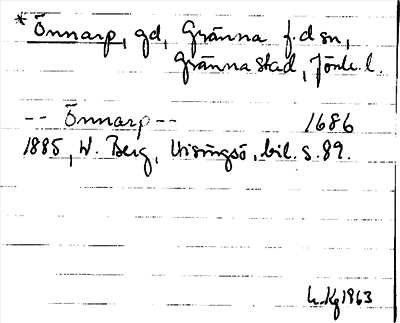 * Önnarp, gd, Gränna f.d sn,
Gränna stad, Jönk. l.
-- Önnarp -- 1686
1885, W. Berg, Visingsö, bil. s. 89.
1963